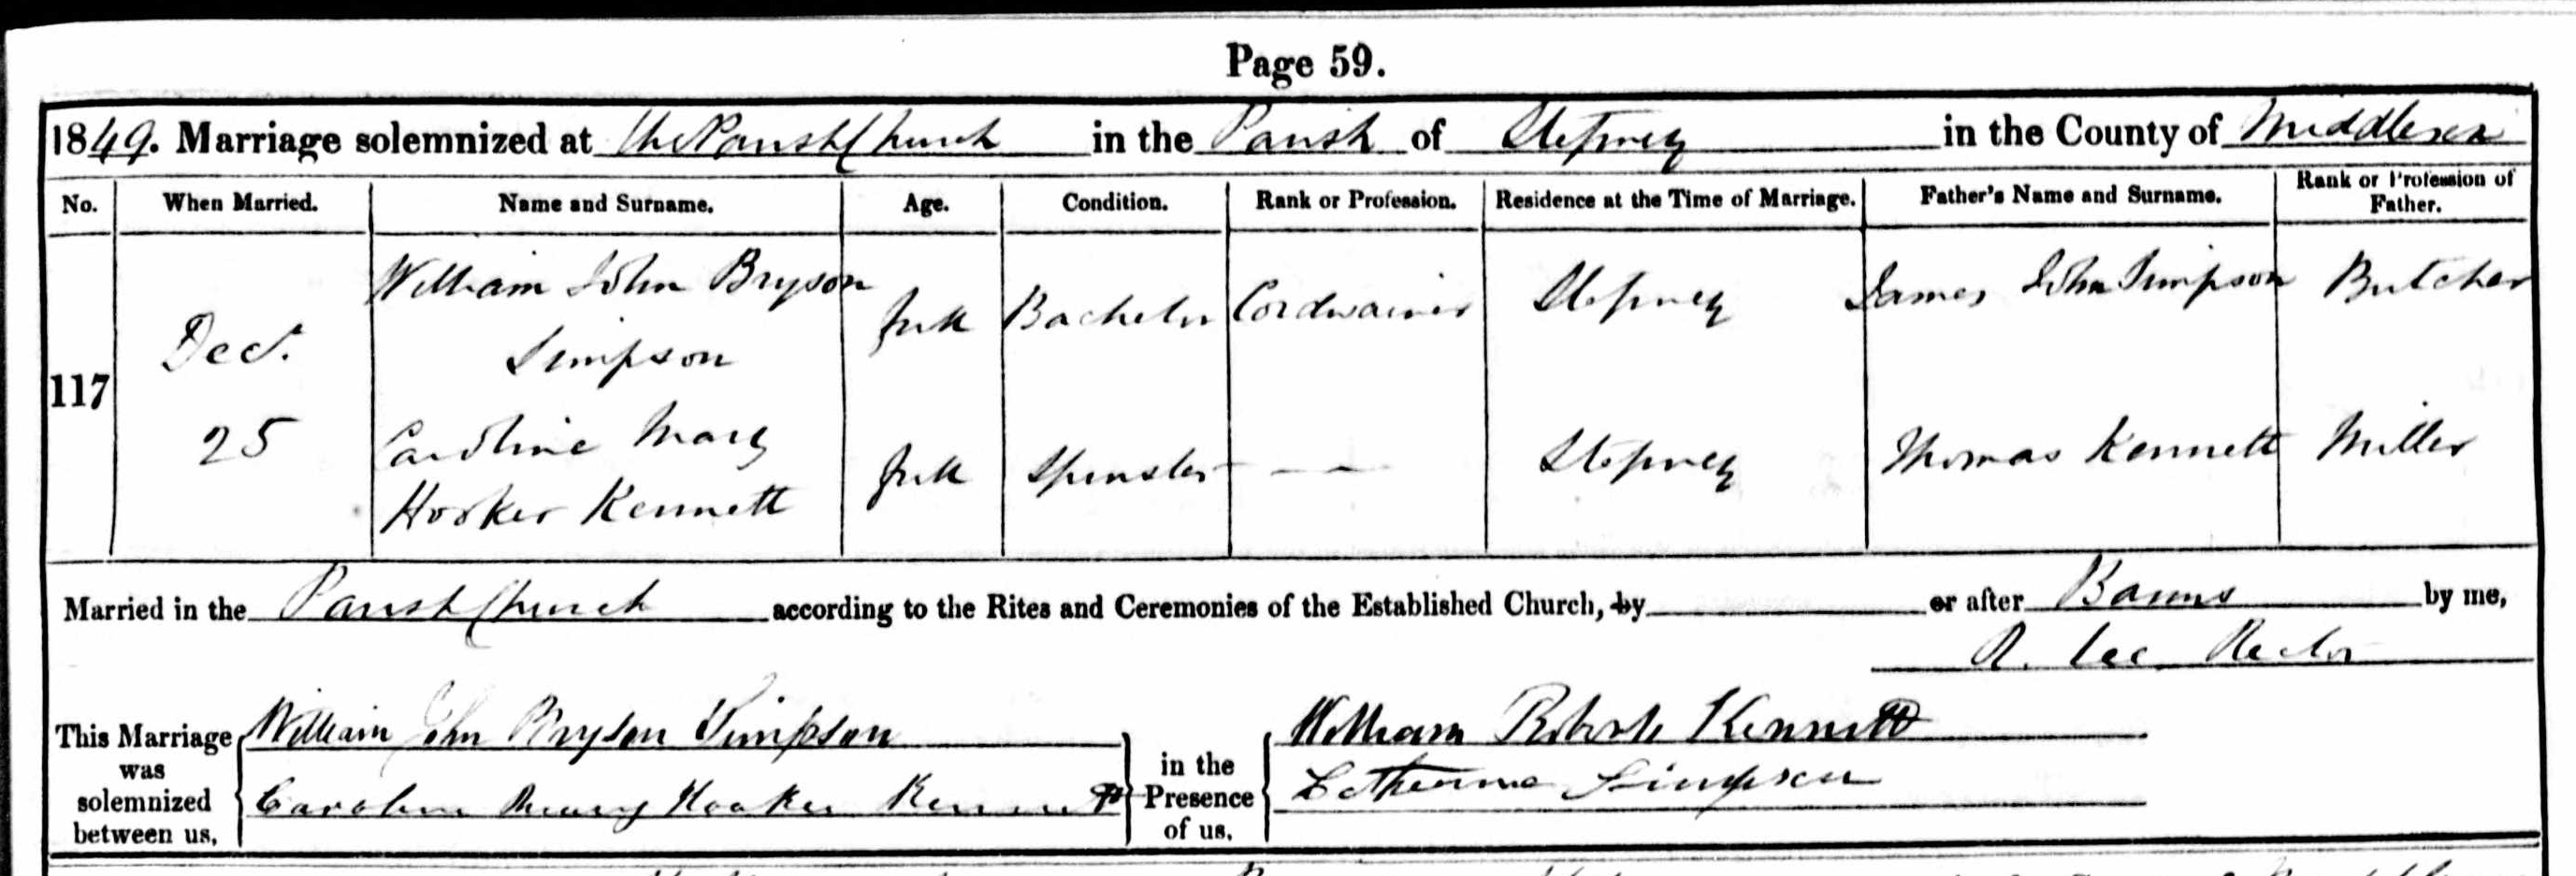 Page 59.
1849. Marriage solemnized at the Parish Church in the Parish of Stepney in the County of Middlesex
No. When Married. Name and Surname. Age. Condition. Rank or Profession. Residence at the Time of Marriage. Father's Name and Surname. Rank or Profession of Father.
117
Dec.
25
William John Bryson
Simpson
full Bachelor Cordwainer Stepney James John Simpson Butcher
Caroline Mary
Hooker Kennett
full Spinster — — Stepney Thomas Kennett Miller
Married in the Parish Church according to the Rites and Ceremonies of the Established Church, by or after Banns by me,
R. Lee Rector
This Marriage was solemnized between us,
William John Bryson Simpson
Caroline Mary Hooker Kennett
in the Presence of us,
William Kennett
Simpson